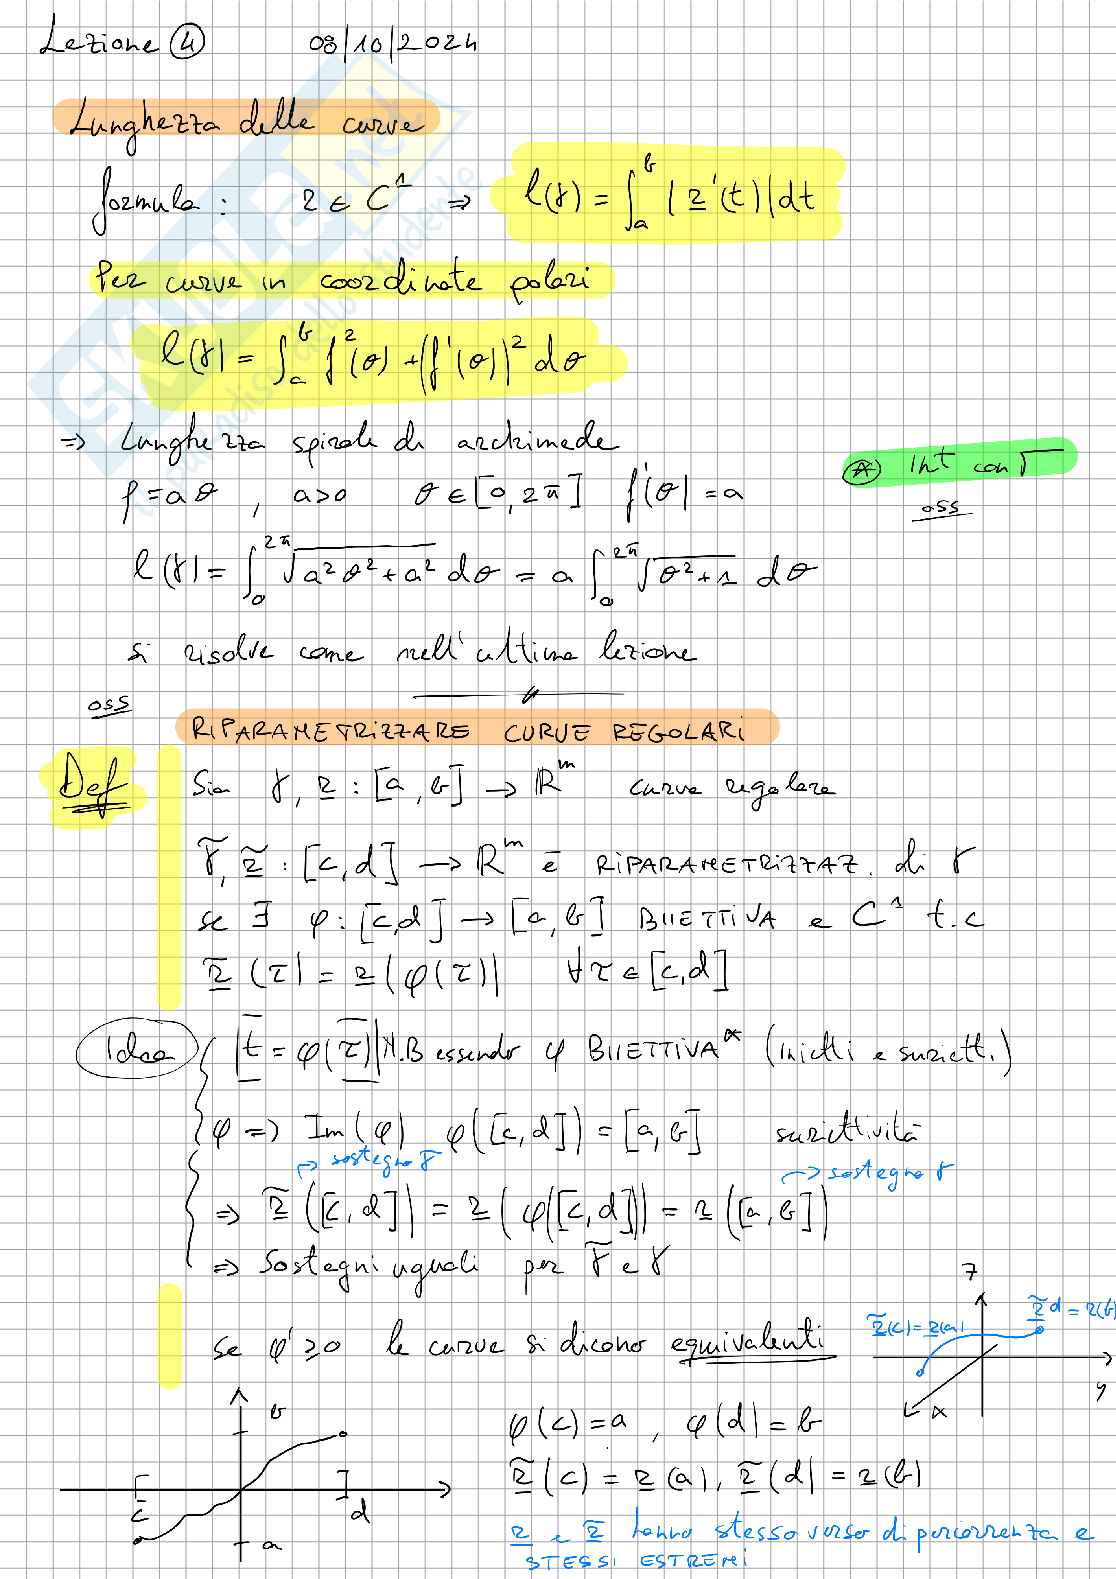 Lezione 4 08/10/2024
Lunghezza delle curve
formula: r ∈ C¹ ⇒ l(γ) = ∫ₐᵇ |r'(t)| dt
Per curve in coordinate polari
l(γ) = ∫ₐᵇ f²(θ) + (f'(θ))² dθ
⇒ Lunghezza spirale di archimede
ρ = aθ , a>0 θ ∈ [0, 2π] f'(θ) = a
(*) Int con √
oss
l(γ) = ∫₀^2π √(a²θ² + a²) dθ = a ∫₀^2π √(θ² + 1) dθ
si risolve come nell'ultima lezione
oss
RIPARAMETRIZZARE CURVE REGOLARI
Def Sia γ, r : [a, b] → ℝᵐ curva regolare
γ̃, r̃ : [c, d] → ℝᵐ è RIPARAMETRIZZAZ. di γ
se ∃ φ : [c,d] → [a, b] BIIETTIVA e C¹ t.c
r̃(τ) = r(φ(τ)) ∀τ ∈ [c,d]
Idea t = φ(τ) N.B essendo φ BIIETTIVA* (inietti e suriett.)
φ ⇒ Im(φ) φ([c, d]) = [a, b] suriettività
→ sostegno γ̃ → sostegno γ
⇒ r̃([c, d]) = r(φ([c, d])) = r([a, b])
⇒ Sostegni uguali per γ̃ e γ
se φ' ≥ 0 le curve si dicono equivalenti
z
r̃(c) = r(a)
r̃ d = r(b)
y
x
b
c
d
a
φ(c) = a , φ(d) = b
r̃(c) = r(a), r̃(d) = r(b)
r e r̃ hanno stesso verso di percorrenza e
STESSI ESTREMI